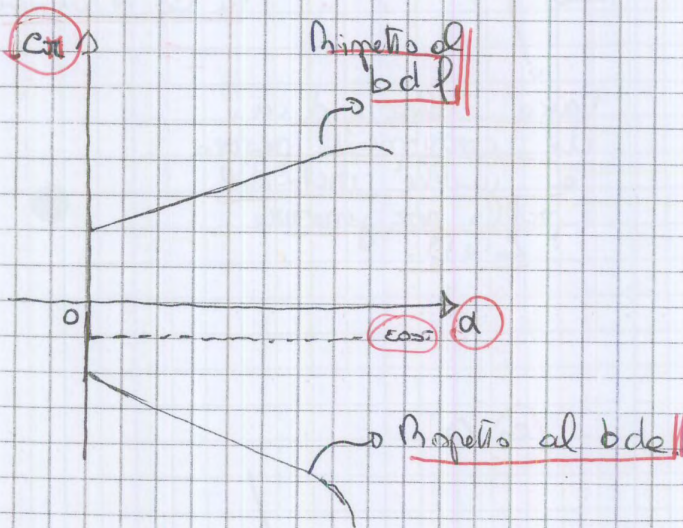 Cm
Rispetto al
b d f
0
cost
α
Rispetto al bda